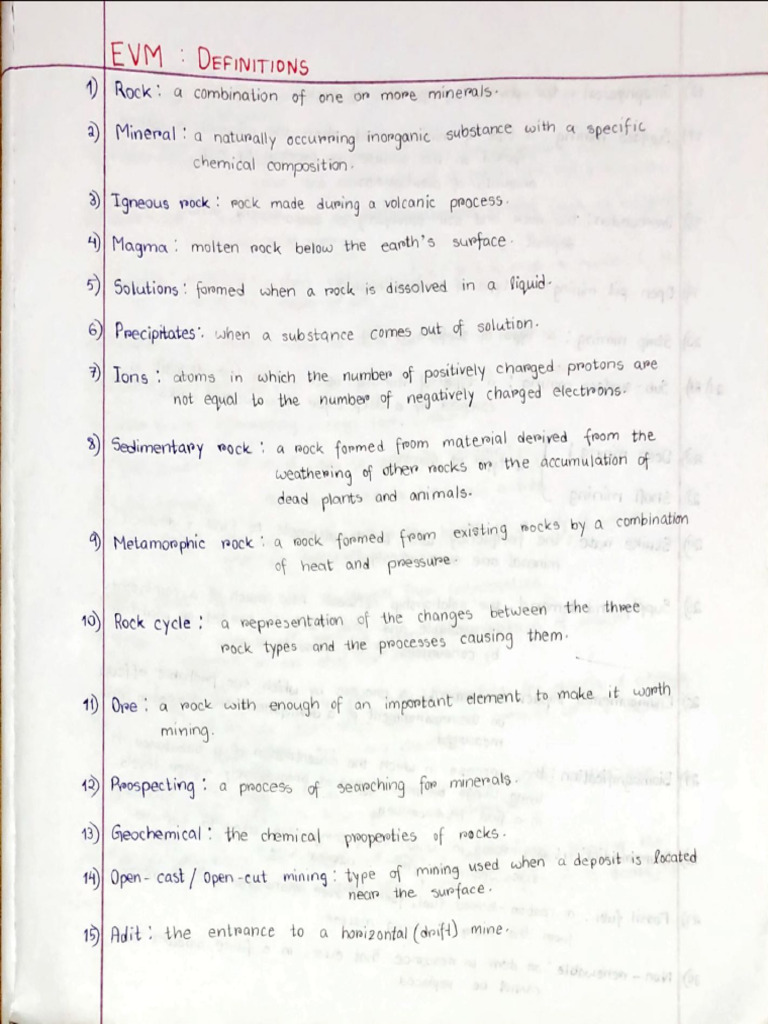 EVM : DEFINITIONS
1) Rock : a combination of one or more minerals.
2) Mineral : a naturally occurring inorganic substance with a specific
chemical composition.
3) Igneous rock : rock made during a volcanic process.
4) Magma : molten rock below the earth's surface.
5) Solutions : formed when a rock is dissolved in a liquid.
6) Precipitates : when a substance comes out of solution.
7) Ions : atoms in which the number of positively charged protons are
not equal to the number of negatively charged electrons.
8) Sedimentary rock : a rock formed from material derived from the
weathering of other rocks or the accumulation of
dead plants and animals.
9) Metamorphic rock : a rock formed from existing rocks by a combination
of heat and pressure.
10) Rock cycle : a representation of the changes between the three
rock types and the processes causing them.
11) Ore : a rock with enough of an important element to make it worth
mining.
12) Prospecting : a process of searching for minerals.
13) Geochemical : the chemical properties of rocks.
14) Open-cast / Open-cut mining : type of mining used when a deposit is located
near the surface.
15) Adit : the entrance to a horizontal (drift) mine.